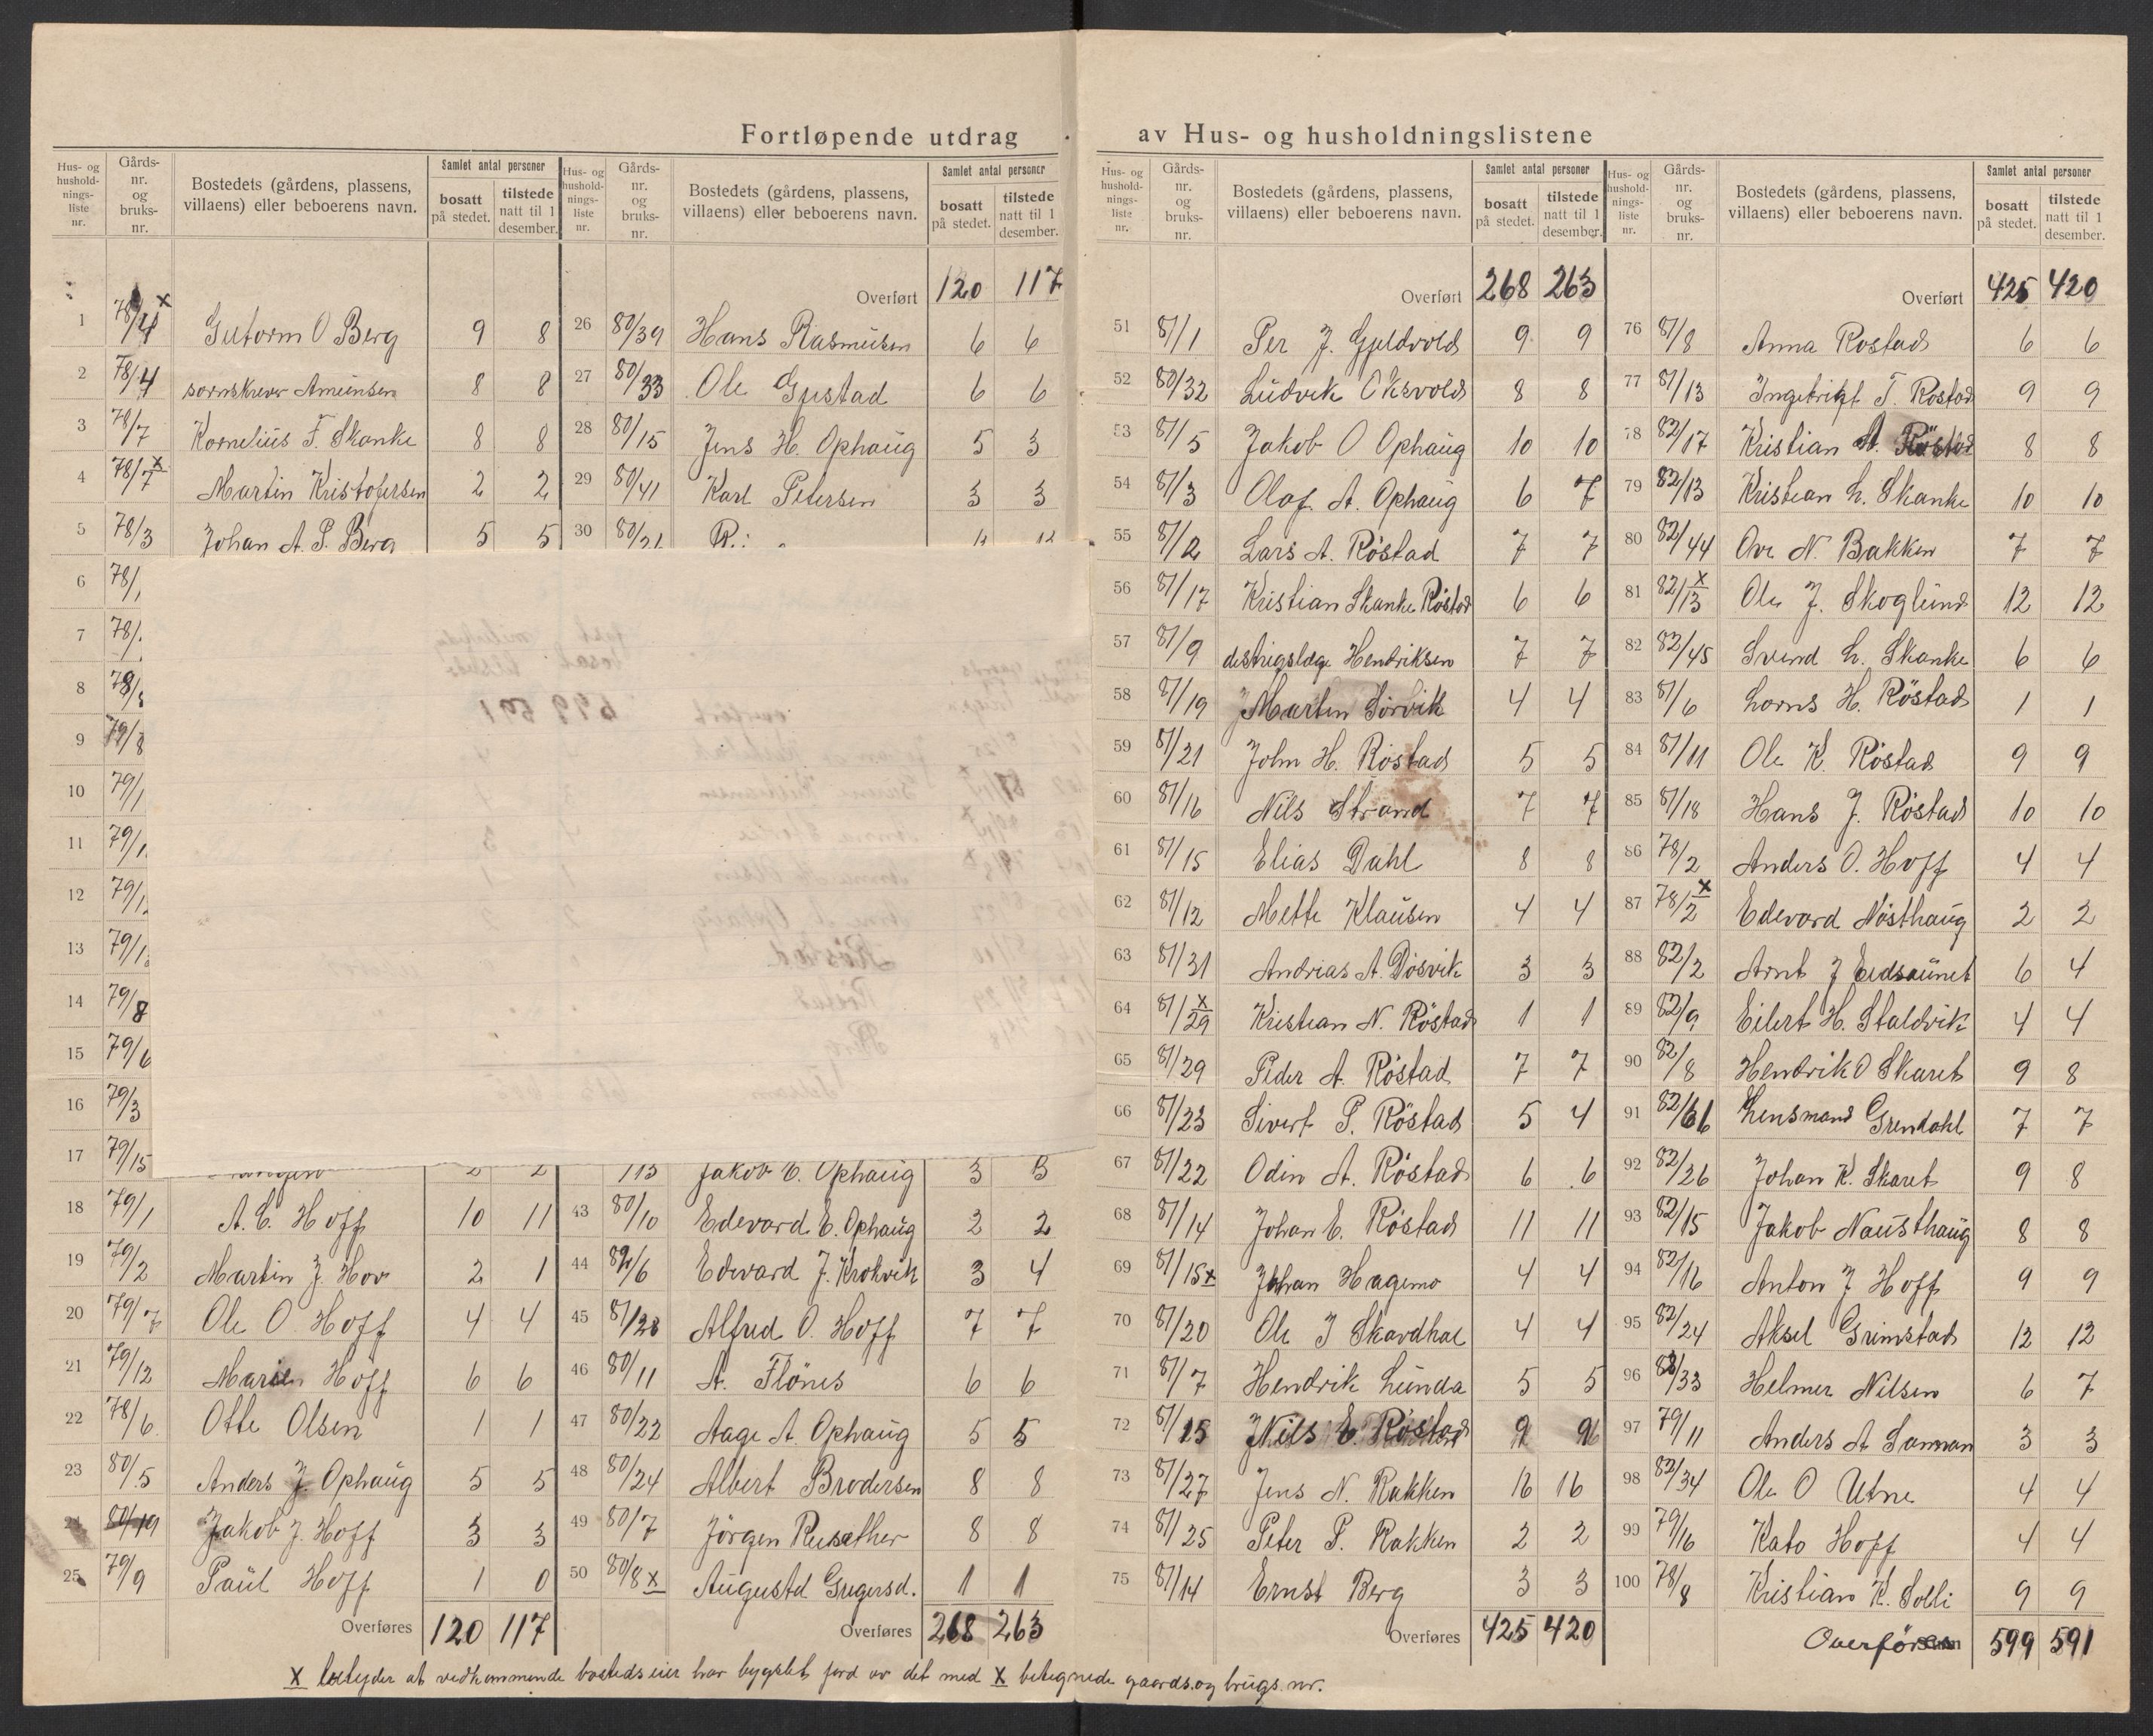 Fortløpende utdrag av Hus- og husholdningslistene
Hus- og husholdningsliste nr. Gårds-nr. og bruks-nr. Bostedets (gårdens, plassens, villaens) eller beboerens navn. Samlet antal personer bosatt på stedet. tilstede natt til 1 desember.
1 78/4 x Gutorm O Berg 9 8
2 78/4 sornskriver Amundsen 8 8
3 78/7 Kornelius F. Skanke 8 8
4 78/7 x Martin Kristofersen 2 2
5 78/3 Johan A. P. Berg 5 5
6 78/
7 78/
8 78/
9 79/8
10 79/1
11 79/1
12 79/1
13 79/1
14 79/8
15 79/6
16 79/3
17 79/15 2 2
18 79/1 A. C. Hoff 10 11
19 79/2 Martin J. Hov 2 1
20 79/7 Ole O. Hoff 4 4
21 79/12 Marien Hoff 6 6
22 78/6 Otte Olsen 1 1
23 80/5 Anders J. Ophaug 5 5
24 80/19 Jakob J. Hoff 3 3
25 79/9 Paul Hoff 1 0
Overføres 120 117
Hus- og husholdningsliste nr. Gårds-nr. og bruks-nr. Bostedets (gårdens, plassens, villaens) eller beboerens navn. Samlet antal personer bosatt på stedet. tilstede natt til 1 desember.
Overført 120 117
26 80/39 Hans Rasmusen 6 6
27 80/33 Ole Gustad 6 6
28 80/15 Jens H. Ophaug 5 3
29 80/41 Karl Petersen 3 3
30 80/21
/13 Jakob C. Ophaug 3 3
43 80/10 Edevard E. Ophaug 2 2
44 82/6 Edevard J. Krokvik 3 4
45 81/28 Alfred O. Hoff 7 7
46 80/11 A. Flönes 6 6
47 80/22 Aage A. Ophaug 5 5
48 80/24 Albert Brodersen 8 8
49 80/7 Jörgen Rusether 8 8
50 80/8 x Augusta Gregersd. 1 1
Overføres 268 263
Hus- og husholdningsliste nr. Gårds-nr. og bruks-nr. Bostedets (gårdens, plassens, villaens) eller beboerens navn. Samlet antal personer bosatt på stedet. tilstede natt til 1 desember.
Overført 268 263
51 81/1 Per J. Gjeldvold 9 9
52 80/32 Ludvik Oksvold 8 8
53 81/5 Jakob O Ophaug 10 10
54 81/3 Olaf A. Ophaug 6 7
55 81/2 Lars A. Röstad 7 7
56 81/17 Kristian Skanke Röstad 6 6
57 81/9 distrigslæge Hendriksen 7 7
58 81/19 Martin Sörvik 4 4
59 81/21 John H. Röstad 5 5
60 81/16 Nils Strand 7 7
61 81/15 Elias Dahl 8 8
62 81/12 Mette Klausen 4 4
63 81/31 Andrias A. Dösvik 3 3
64 81/29 x Kristian N. Röstad 1 1
65 81/29 Peder A. Röstad 7 7
66 81/23 Sivert P. Röstad 5 4
67 81/22 Odin A. Röstad 6 6
68 81/14 Johan E. Röstad 11 11
69 81/15 x Johan Hagemo 4 4
70 81/20 Ole J Skavdhal 4 4
71 81/7 Hendrik Lunda 5 5
72 81/15 Nils E. Röstad 9 9
73 81/27 Jens N. Rakken 16 16
74 81/25 Peter P. Rakken 2 2
75 81/14 Ernst Berg 3 3
Overføres 425 420
Hus- og husholdningsliste nr. Gårds-nr. og bruks-nr. Bostedets (gårdens, plassens, villaens) eller beboerens navn. Samlet antal personer bosatt på stedet. tilstede natt til 1 desember.
Overført 425 420
76 81/8 Anna Rostad 6 6
77 81/13 Ingebrigt T. Rostad 9 9
78 82/17 Kristian A. Röstad 8 8
79 82/13 Kristian L. Skanke 10 10
80 82/44 Ove N. Bakken 7 7
81 82/13 x Ole J. Skoglund 12 12
82 82/45 Svend L. Skanke 6 6
83 81/6 Lorns H. Röstad 1 1
84 81/11 Ole K. Röstad 9 9
85 81/18 Hans J. Röstad 10 10
86 78/2 Anders O. Hoff 4 4
87 78/2 x Edevard Nösthaug 2 2
88 82/2 Arnt J Eidsaunet 6 4
89 82/9 Eilert H. Staldvik 4 4
90 82/8 Hendrik O Skaret 9 8
91 82/61 Lensmand Grendahl 7 7
92 82/26 Johan K. Skaret 9 8
93 82/15 Jakob Nausthaug 8 8
94 82/16 Anton J Hoff 9 9
95 82/24 Aksel Grimstad 12 12
96 82/33 Helmer Nilsen 6 7
97 79/11 Anders A Sannan 3 3
98 82/34 Ole O Utne 4 4
99 79/16 Kato Hoff 4 4
100 78/8 Kristian K. Solli 9 9
Overføres 599 591
X betyder at vedkommende bostedseier har bygslet jord av det med X betegnede gaards. og brugs. nr.